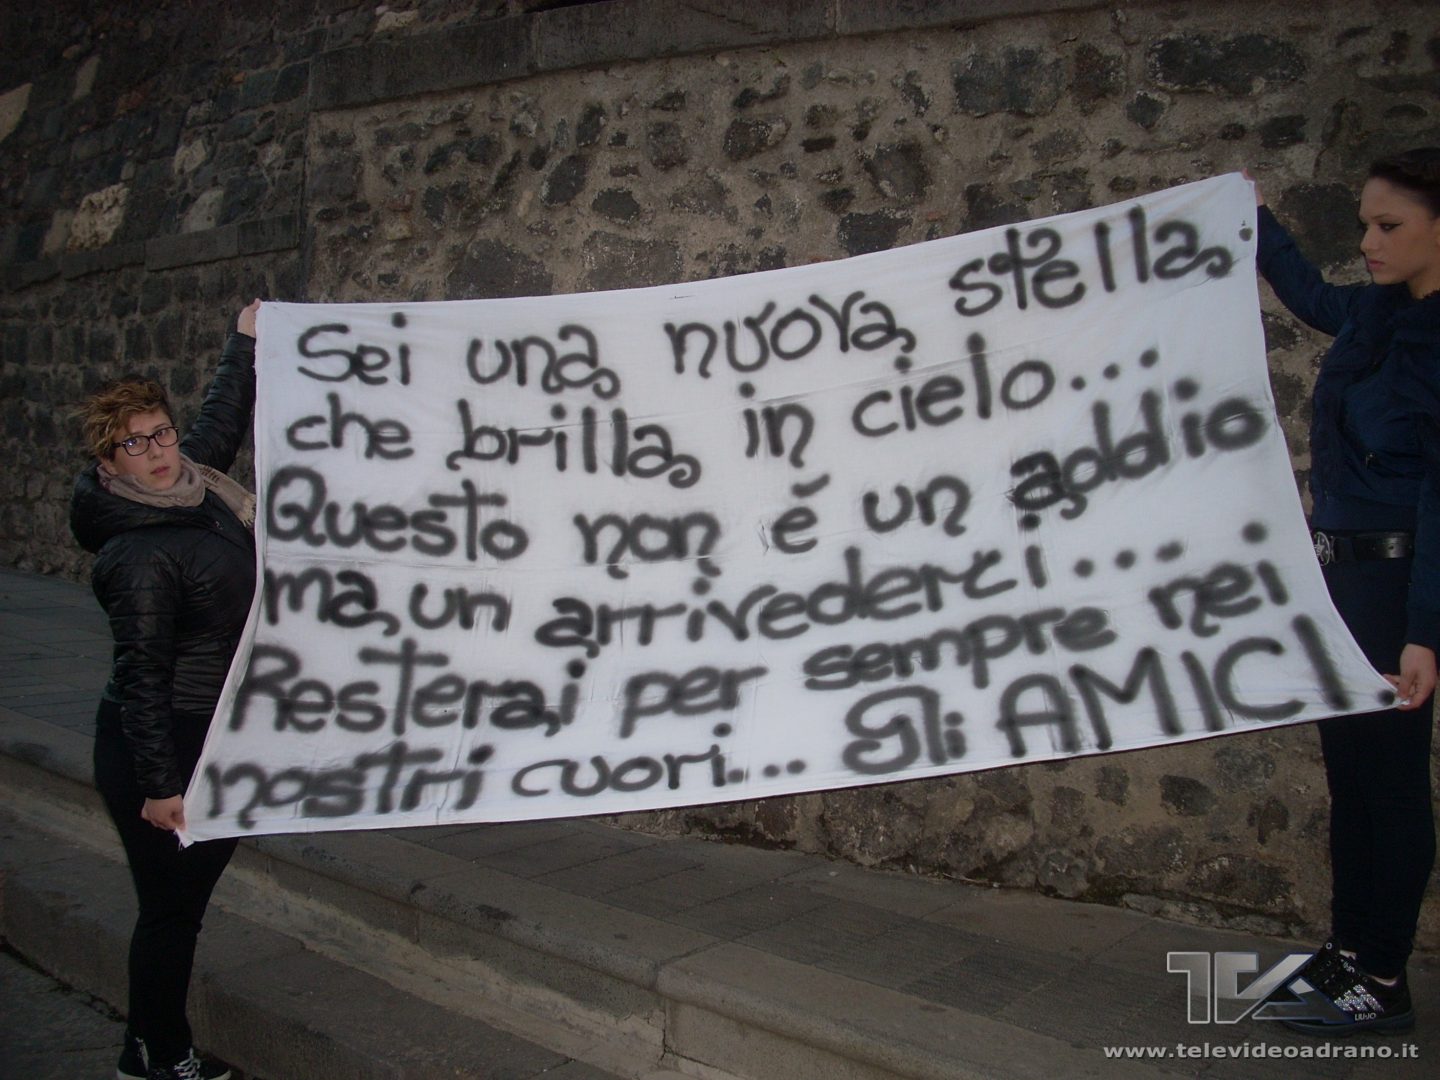 Sei una nuova stella.
che brilla in cielo...
Questo non é un addio
ma un arrivederci....
Resterai per sempre nei
nostri cuori.... Gli AMICI.
TVA
LIU·JO
www.televideoadrano.it